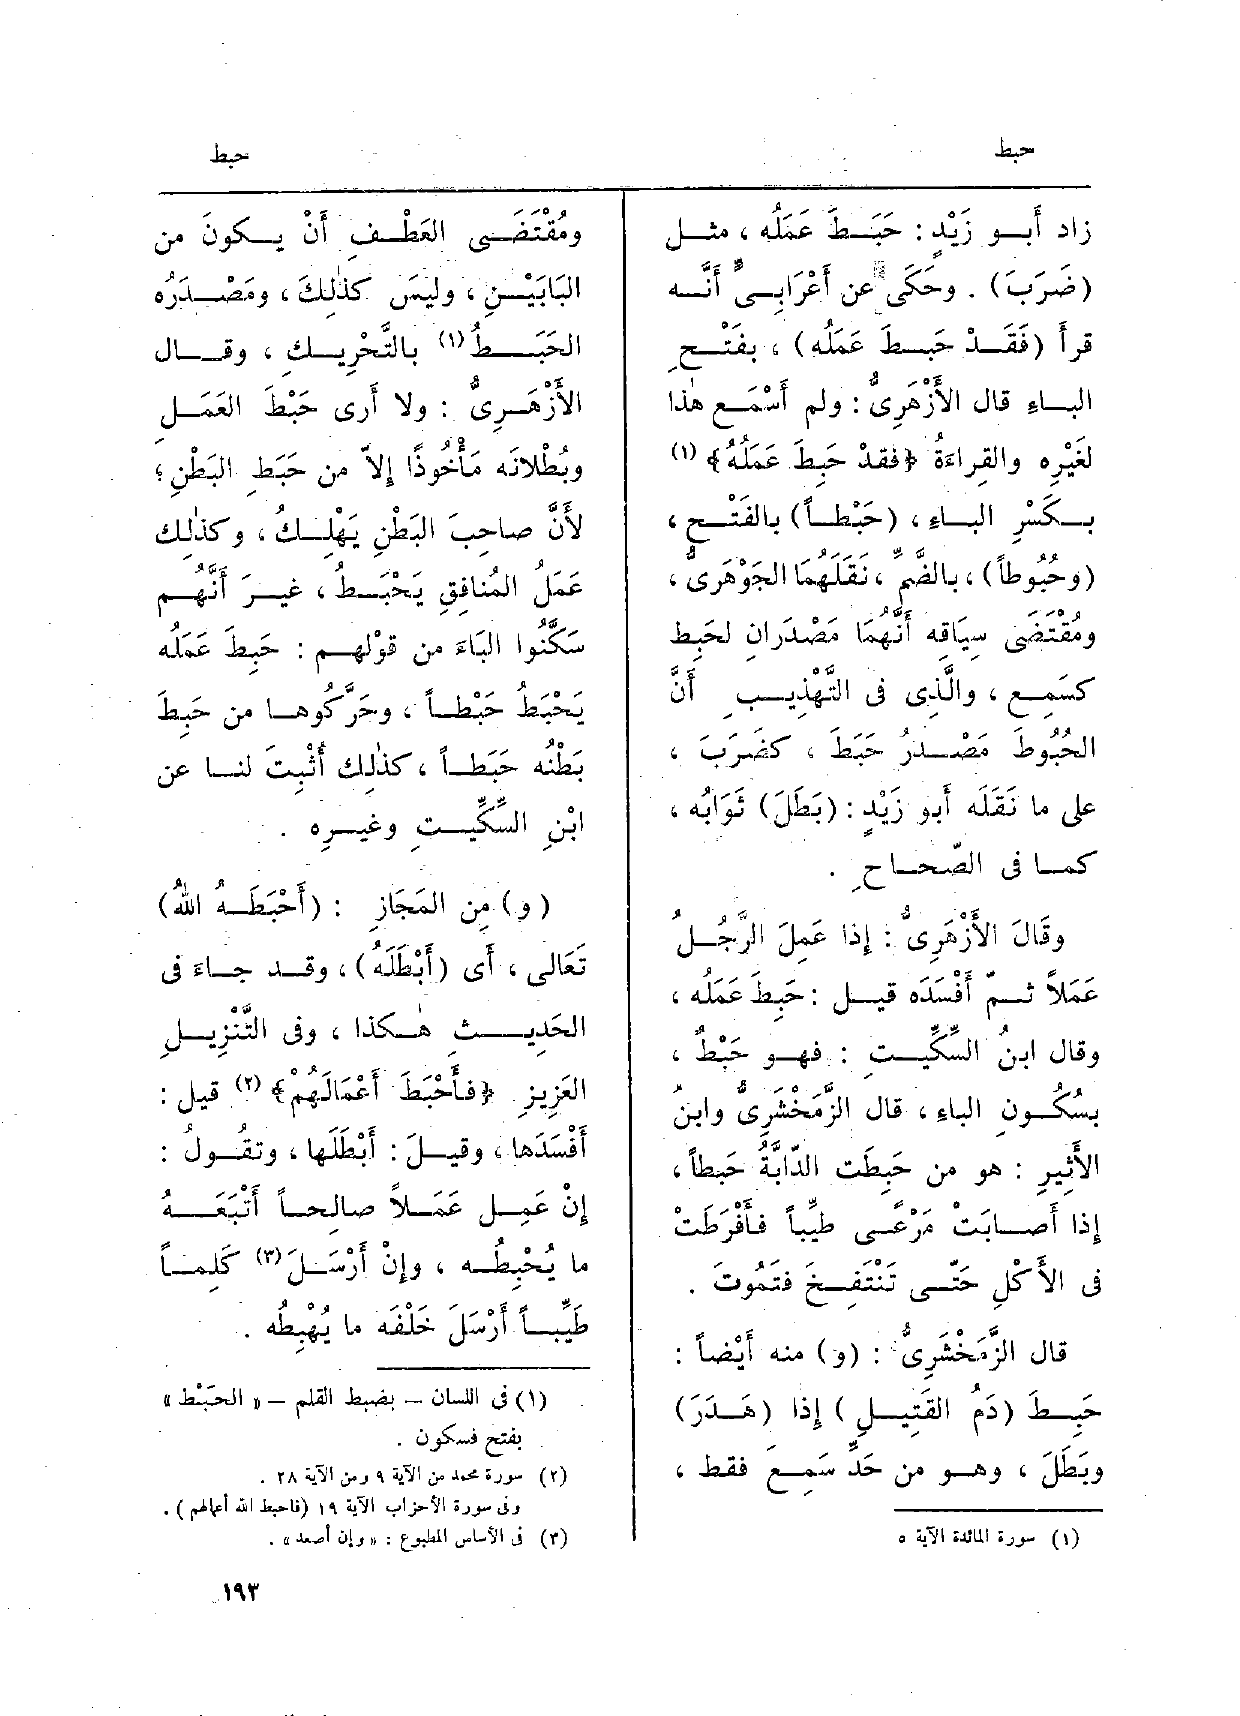 حبط
حبط
زاد أَبو زَيْدٍ : حَبَطَ عَمَلُه ، مثل
(ضَرَبَ) . وحَكَى عن أَعْرَابِىٍّ أَنَّه
قرأَ (فَقَدْ حَبَطَ عَمَلُه) ، بفَتْحِ
الباءِ قال الأَزْهَرِىُّ : ولم أَسْمَع هٰذا
لغَيْرِه والقِراءَةُ ﴿فقَدْ حَبِطَ عَمَلُهُ﴾ (١)
بكَسْرِ الباءِ ، (حَبْطاً) بالفَتْحِ ،
(وحُبُوطاً) ، بالضَّمِّ ، نَقَلَهُمَا الجَوْهَرِىُّ ،
ومُقْتَضَى سِيَاقِه أَنَّهُمَا مَصْدَرانِ لحَبِط
كسَمِع ، والَّذِى فى التَّهْذِيبِ أَنَّ
الحُبُوطَ مَصْدَرُ حَبَطَ ، كضَرَبَ ،
على ما نَقَلَه أَبو زَيْدٍ : (بَطَلَ) ثَوَابُه ،
كما فى الصّحاحِ .
وقَالَ الأَزْهَرِىُّ : إِذا عَمِلَ الرَّجُلُ
عَمَلاً ثمّ أَفْسَدَه قيل : حَبِطَ عَمَلُه ،
وقال ابنُ السِّكِّيتِ : فهو حَبْطٌ ،
بسُكُونِ الباءِ ، قال الزَّمَخْشَرِىُّ وابنُ
الأَثِيرِ : هو من حَبِطَت الدّابَّةُ حَبَطاً ،
إِذا أَصابَتْ مَرْعًى طَيِّباً فأَفْرَطَتْ
فى الأَكْلِ حَتّى تَنْتَفِخَ فتَمُوتَ .
قال الزَّمَخْشَرِىُّ : (و) منه أَيْضاً :
حَبِطَ (دَمُ القَتِيلِ) إِذا (هَدَرَ)
وبَطَلَ ، وهو من حَدِّ سَمِعَ فقط ،
(١) سورة المائدة الآية ٥
ومُقْتَضَى العَطْفِ أَنْ يكونَ من
البَابَيْنِ ، وليسَ كذٰلِكَ ، ومَصْدَرُه
الحَبَطُ (١) بالتَّحْرِيكِ ، وقال
الأَزْهَرِىُّ : ولا أَرى حَبْطَ العَمَلِ
وبُطْلانَه مَأْخُوذًا إِلاّ من حَبَطِ البَطْنِ ؛
لأَنَّ صاحِبَ البَطْنِ يَهْلِكُ ، وكذٰلك
عَمَلُ المُنافِقِ يَحْبَطُ ، غيرَ أَنَّهُم
سَكَّنُوا البَاءَ من قوْلهِم : حَبِطَ عَمَلُه
يَحْبَطُ حَبْطاً ، وحَرَّكُوها من حَبِطَ
بَطْنُه حَبَطاً ، كذٰلِك أُثْبِتَ لنا عن
ابْنِ السِّكِّيتِ وغيرِه .
(و) مِن المَجَازِ : (أَحْبَطَهُ اللهُ)
تَعَالى ، أَى (أَبْطَلَهُ) ، وقد جاءَ فى
الحَدِيثِ هٰكذا ، وفى التَّنْزِيلِ
العَزِيزِ ﴿فأَحْبَطَ أَعْمَالَهُمْ﴾ (٢) قيل :
أَفْسَدَها ، وقيلَ : أَبْطَلَها ، وتقُولُ :
إِنْ عَمِل عَمَلاً صالحاً أَتْبَعَهُ
ما يُحْبِطُه ، وإِنْ أَرْسَلَ (٣) كَلِماً
طَيِّباً أَرْسَلَ خَلْفَه ما يُهْبِطُه .
(١) فى اللسان – بضبط القلم – « الحَبْط »
بفتح فسكون .
(٢) سورة محمد من الآية ٩ ومن الآية ٢٨ .
وفى سورة الأحزاب الآية ١٩ (فأحبط الله أعمالهم) .
(٣) فى الأساس المطبوع : « وإن أصعد » .
١٩٣